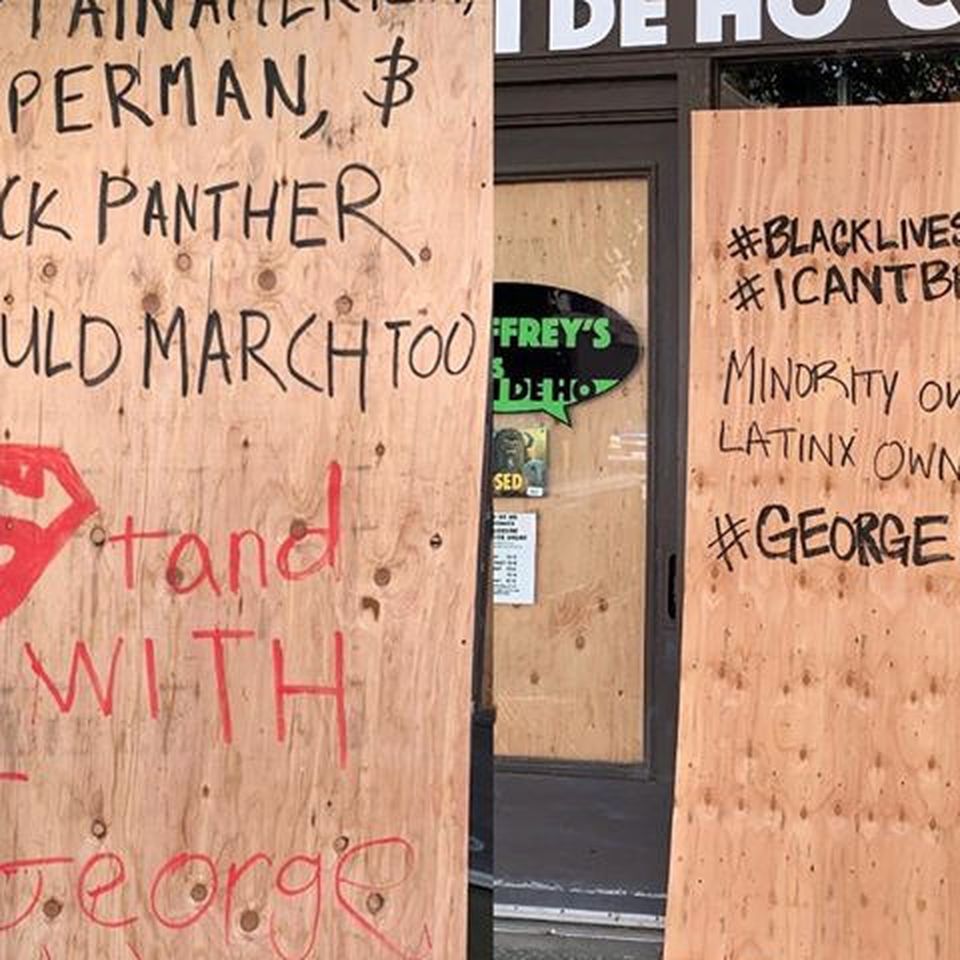 PERMAN, &
CK PANTHER
ULD MARCH TOO
tand
WITH
George
DE HO
FFREY'S
DE HO
SED
#BLACKLIVES
#ICANTB
MINORITY OW
LATINX OWN
#GEORGE